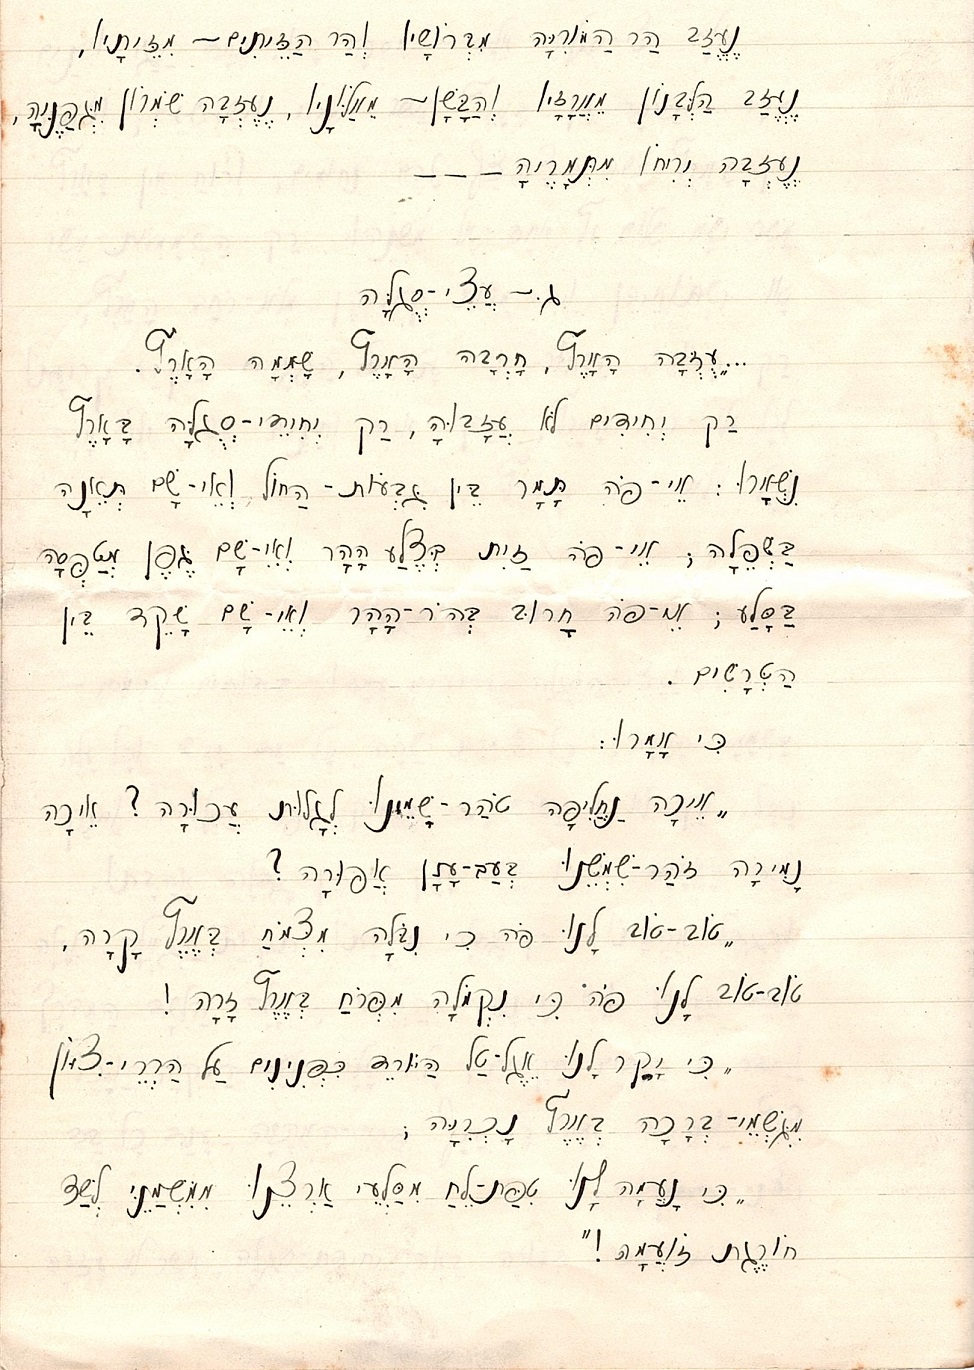 נֶעֱזַב הַר הַמּוֹרִיָּה מִבְּרוֹשָׁיו וְהַר הַזֵּיתִים – מִזֵּיתָיו,
נֶעֱזַב הַלְּבָנוֹן מֵאֲרָזָיו וְהַבָּשָׁן – מֵאַלּוֹנָיו, נֶעֶזְבָה שֹׁמְרוֹן מִגְּפָנֶיהָ,
נֶעֶזְבָה יְרִיחוֹ מִתְּמָרֶיהָ – – –
ג. – עֲצֵי-סְגֻלָּה
..."עֻזְּבָה הָאָרֶץ, חָרְבָה הָאָרֶץ, שָׁמְמָה הָאָרֶץ.
רַק יְחִידִים לֹא עֲזָבוּהָ, רַק יְחִידֵי-סְגֻלָּה בָּאָרֶץ
נִשְׁאָרוּ: אֵי-פֹּה תָּמָר בֵּין גִּבְעוֹת-הַחוֹל וְאֵי-שָׁם תְּאֵנָה
בַּשְּׁפֵלָה; אֵי-פֹּה זַיִת בְּצֶלַע הָהָר וְאֵי-שָׁם גֶּפֶן מְטַפְּסָה
בַּסֶּלַע; אֵי-פֹּה חָרוּב בְּהֹר-הָהָר וְאֵי-שָׁם שָׁקֵד בֵּין
הַטְּרָשִׁים.
כִּי אָמָרוּ:
"אֵיכָה נַחֲלִיפָה טֹהַר-שָׁמֵינוּ לְגָלוּת עֲכוּרָה? אֵיכָה
נָמִירָה זֹהַר-שִׁמְשֵׁנוּ בְּעַב-עָנָן אֲפוֹרָה?
"טוֹב-טוֹב לָנוּ פֹּה כִּי נִבֹּלָה מִצְּמֹחַ בְּאֶרֶץ קָרָה,
טוֹב-טוֹב לָנוּ פֹּה כִּי נִקְמֹלָה מִפְּרֹחַ בְּאֶרֶץ זָרָה!
"כִּי יָקָר לָנוּ אֶגֶל-טַל הַיּוֹרֵד כִּפְנִינִים עַל הַרְרֵי-צִיּוֹן
מִגִּשְׁמֵי-בְּרָכָה בְּאֶרֶץ נָכְרִיָּה;
"כִּי נָעֲמָה לָנוּ טִפַּת-לֵחַ מִסַּלְעֵי אַרְצֵנוּ מִמִּשְׁמַנֵּי לְשַׁד
חוֹרֶגֶת זוֹעֲמָה!"